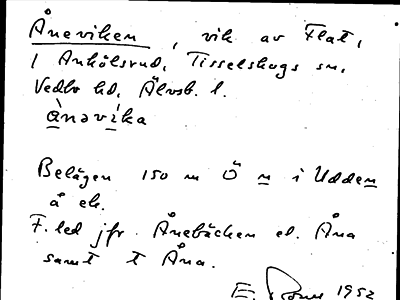 Åneviken, vik av Flat,
i Ankölsrud, Tisselskogs sn,
Vedbo hd, Älvsb. l.
ànavíka
Belägen 150 m Ö n i Udden
å ek.
F. led jfr Ånebäcken el. Åna
samt t Åna.
E. 1952